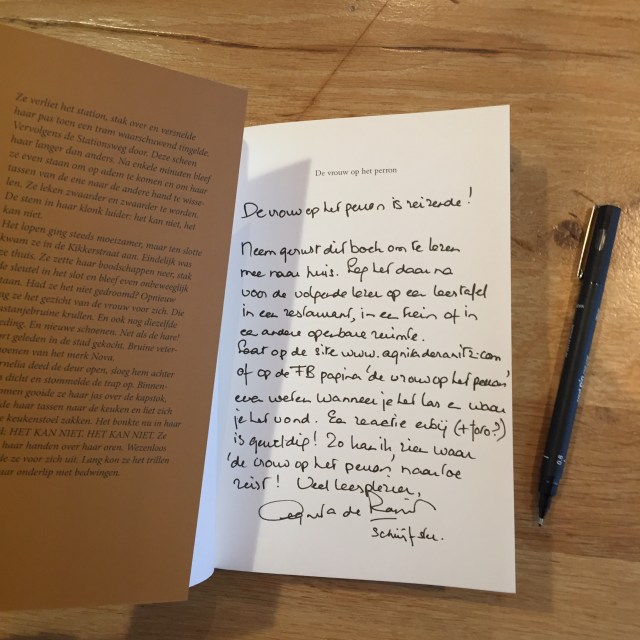 Ze verliet het station, stak over en versnelde
haar pas toen een tram waarschuwend tingelde.
Vervolgens de Stationsweg door. Deze scheen
haar langer dan anders. Na enkele minuten bleef
ze even staan om op adem te komen en om haar
tassen van de ene naar de andere hand te wisse-
len. Ze leken zwaarder en zwaarder te worden.
De stem in haar klonk luider: het kan niet, het
kan niet.
Het lopen ging steeds moeizamer, maar ten slotte
kwam ze in de Kikkerstraat aan. Eindelijk was
ze thuis. Ze zette haar boodschappen neer, stak
de sleutel in het slot en bleef even onbeweeglijk
staan. Had ze het niet gedroomd? Opnieuw
ag ze het gezicht van de vrouw voor zich. Die
astanjebruine krullen. En ook nog diezelfde
eding. En nieuwe schoenen. Net als de hare!
ort geleden in de stad gekocht. Bruine veter-
hoenen van het merk Nova.
rnelia deed de deur open, sloeg hem achter
h dicht en stommelde de trap op. Binnen-
omen gooide ze haar jas over de kapstok,
de haar tassen naar de keuken en liet zich
r keukenstoel zakken. Het bonkte nu in haar
d: HET KAN NIET. HET KAN NIET. Ze
haar handen over haar oren. Wezenloos
de ze voor zich uit. Lang kon ze het trillen
ar onderlip niet bedwingen.
De vrouw op het perron
De vrouw op het perron is reizende!
Neem gerust dit boek om te lezen
mee naar huis. Leg het daarna
voor de volgende lezer op een leestafel
in een restaurant, in een trein of in
een andere openbare ruimte.
Laat op de site www.agnitaderanitz.com
of op de FB pagina 'de vrouw op het perron'
even weten wanneer je het las en waar
je het vond. Een reactie erbij (+ foto?)
is geweldig! Zo kan ik zien waar
'de vrouw op het perron' naar toe
reist! Veel leesplezier,
Agnita de Ranitz
schrijfster.